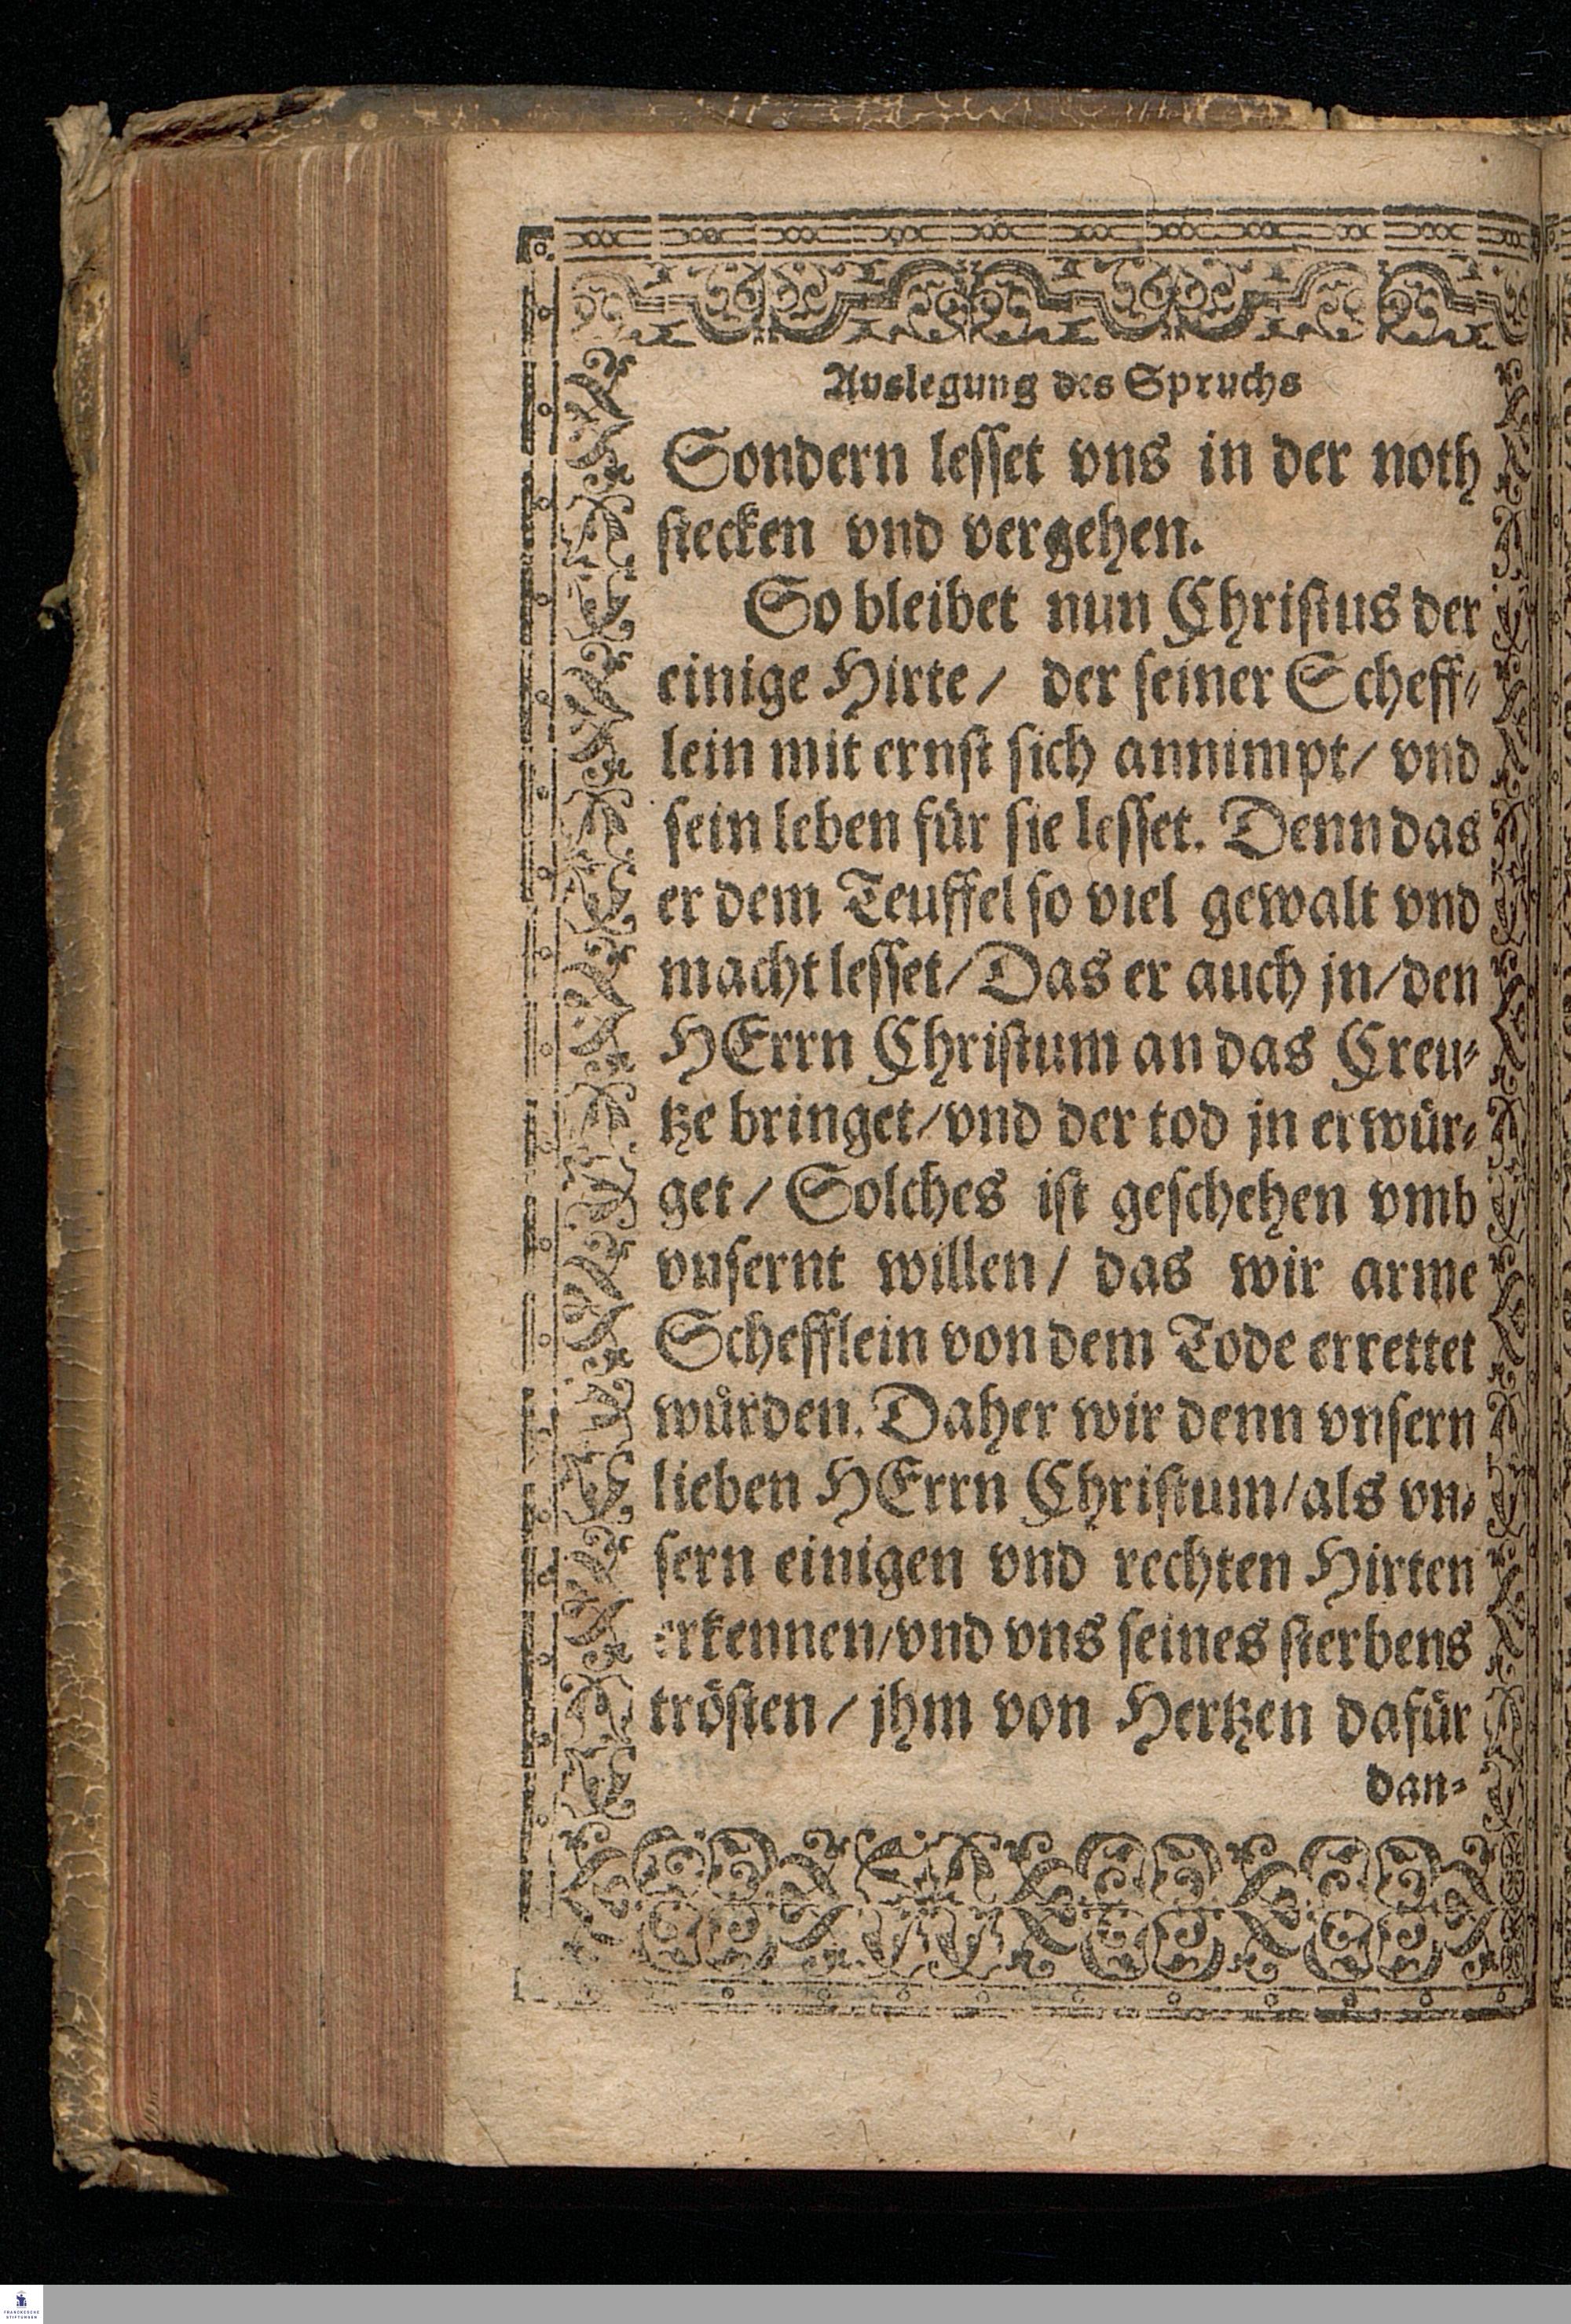 Auslegung des Spruchs
Sondern lesset vns in der noth
stecken vnd vergehen.
So bleibet nun Christus der
einige Hirte / der seiner Scheff⸗
lein mit ernst sich annimpt / vnd
sein leben für sie lesset. Denn das
er dem Teuffel so viel gewalt vnd
macht lesset / Das er auch jn / den
HErrn Christum an das Creu⸗
tze bringet / vnd der tod jn erwür⸗
get / Solches ist geschehen vmb
vnsernt willen / das wir arme
Schefflein von dem Tode errettet
würden. Daher wir denn vnsern
lieben HErrn Christum / als vn⸗
sern einigen vnd rechten Hirten
erkennen / vnd vns seines sterbens
trösten / jhm von Hertzen dafür
dan⸗
FRANCKESCHE
STIFTUNGEN